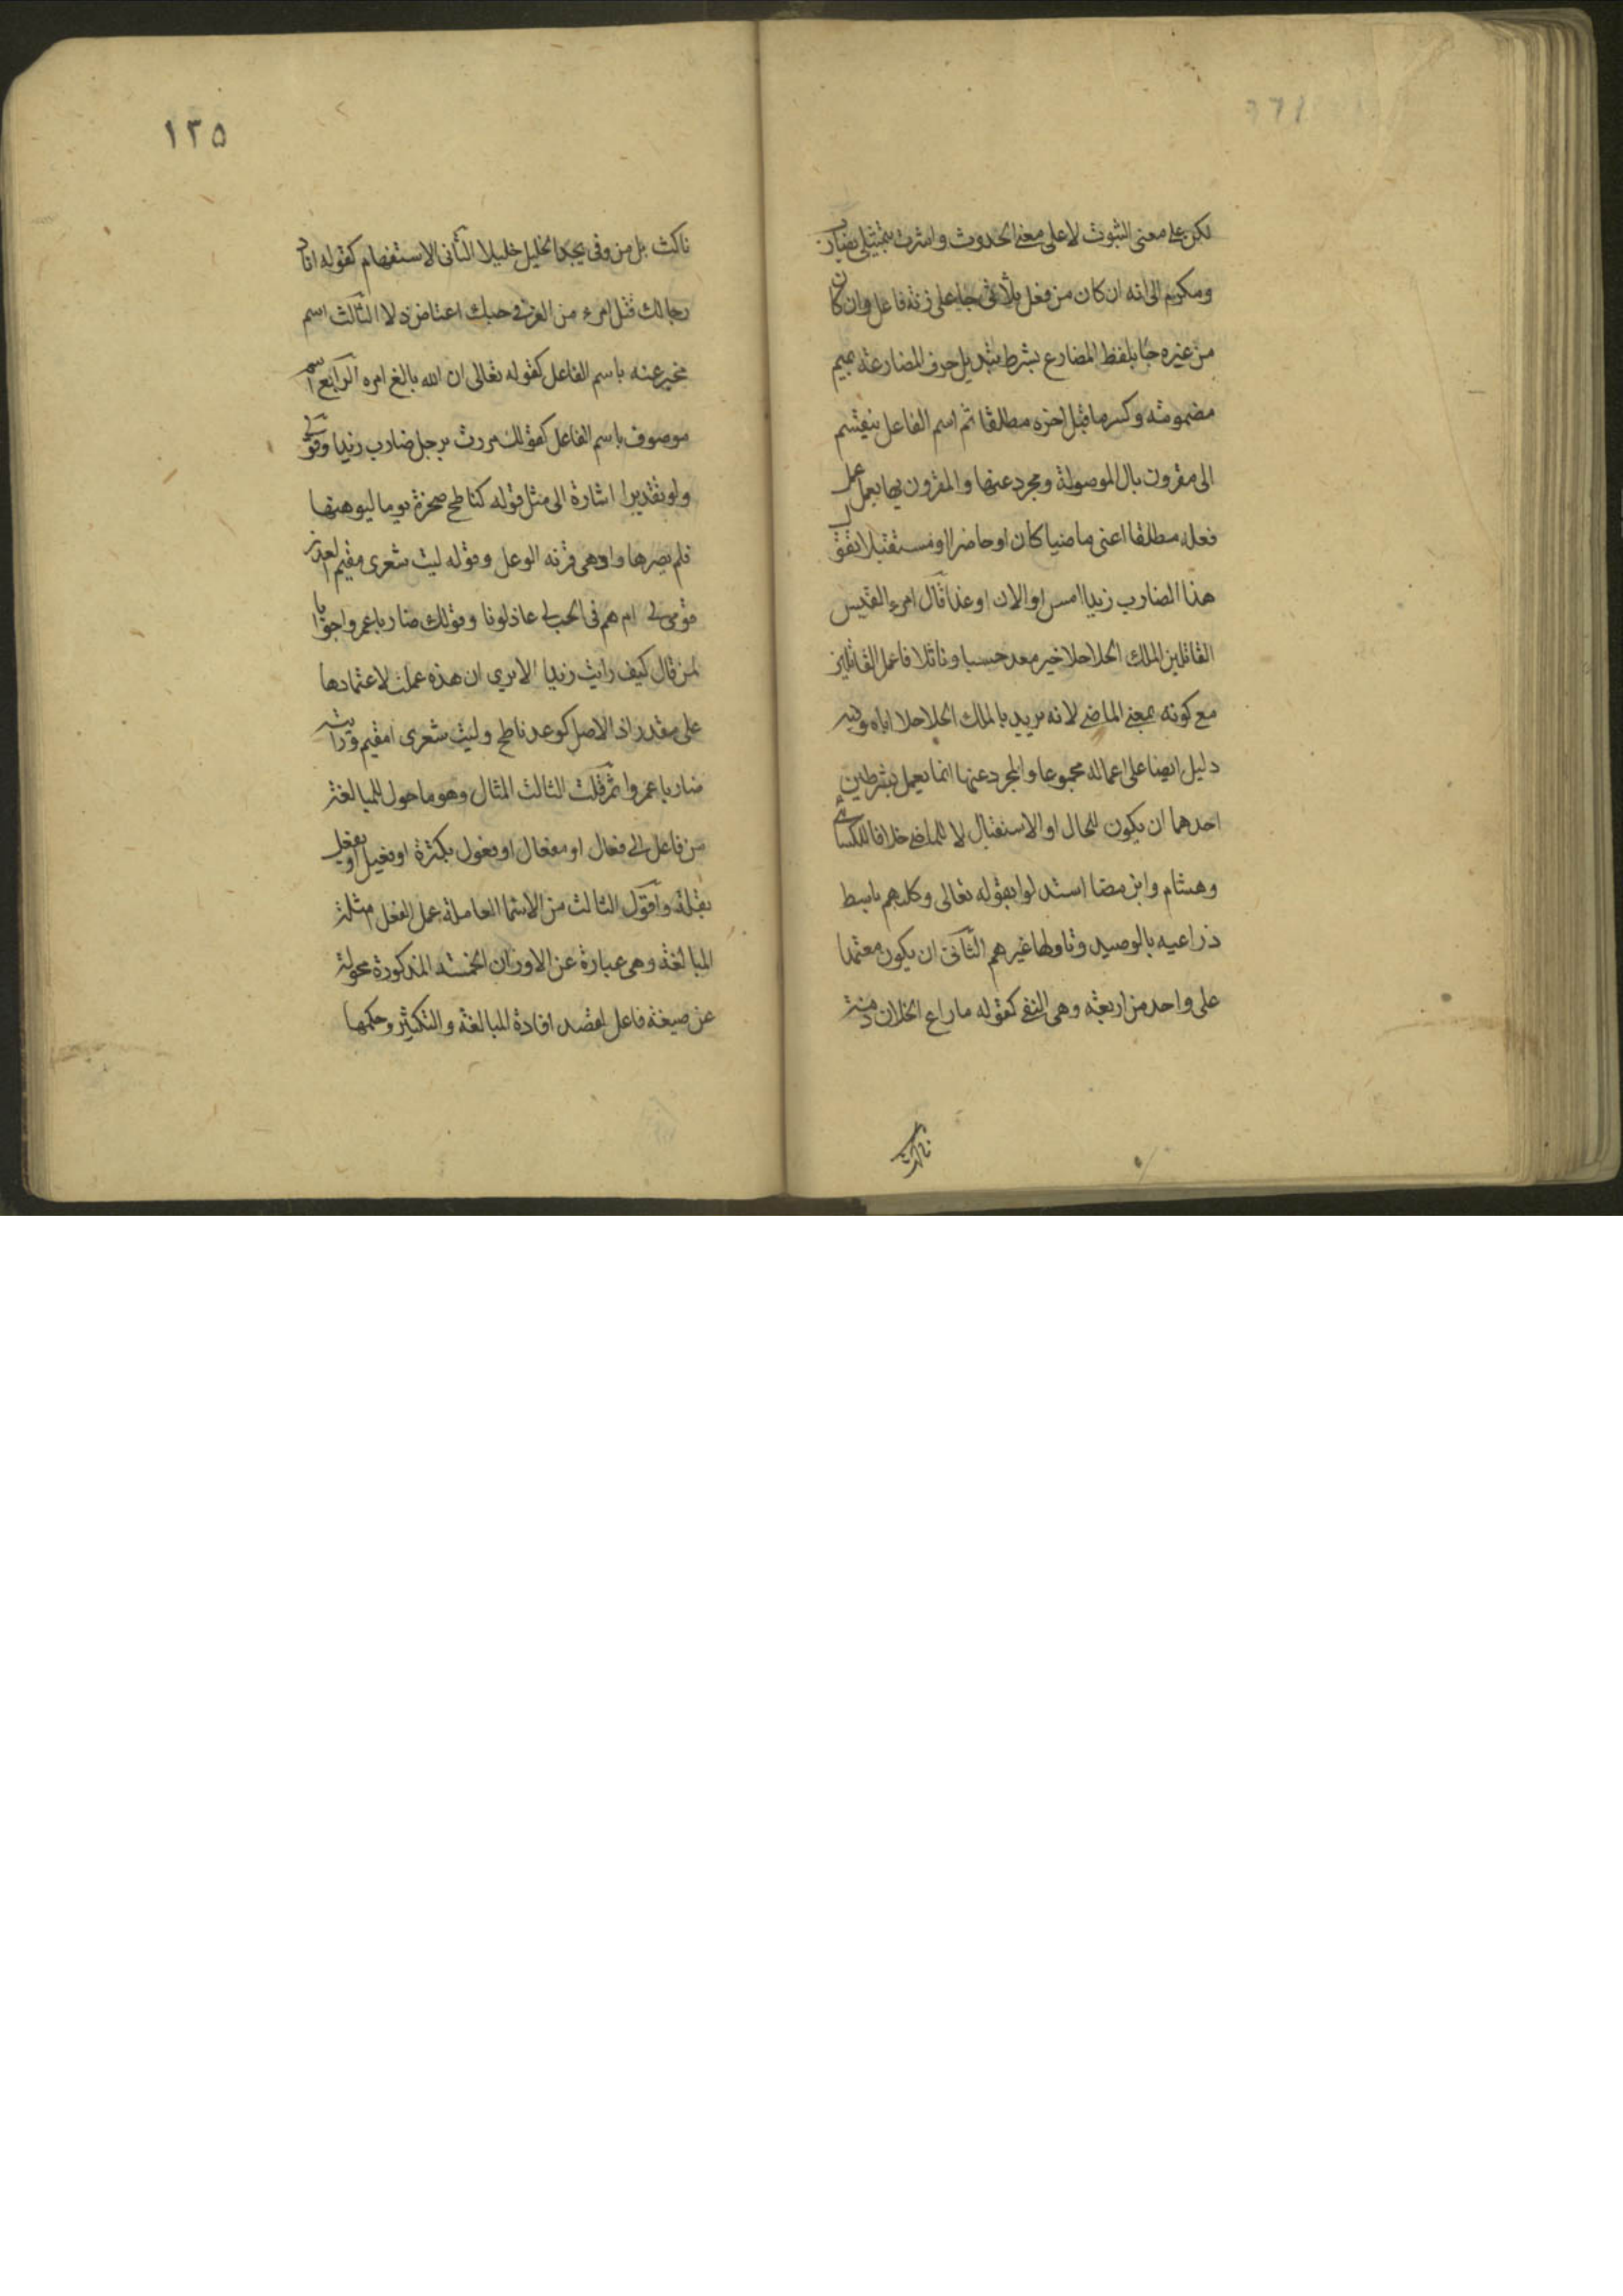 لكن على معنى الثبوت لا على معنى الحدوث واشرت بتمثيلى بضارب
ومكرم الى انه ان كان من فعل ثلاثى جا على زنة فاعل وان كان
من غيره جا بلفظ المضارع بشرط تبديل حرف المضارعة بميم
مضمومة وكسر ما قبل اخره مطلقا ثم اسم الفاعل ينقسم
الى مقرون بال الموصولة ومجرد عنها والمقرون بها يعمل عمل
فعله مطلقا اعنى ماضيا كان او حاضرا او مستقبلا تقول
هذا الضارب زيدا امس او الان او غدا قال امرء القيس
القاتلين الملك الحلاحلا خير معد حسبا ونائلا فاعمل القاتلين
مع كونه بمعنى الماضى لانه يريد بالملك الحلاحلا اباه وفيه
دليل ايضا على اعماله مجموعا والمجرد عنها انما يعمل بشرطين
احدهما ان يكون للحال او الاستقبال لا للماضى خلافا للكسائى
وهشام وابن مضا استدلوا بقوله تعالى وكلبهم باسط
ذراعيه بالوصيد وتاولها غيرهم الثانى ان يكون معتمدا
على واحد من اربعة وهى النفى كقوله ما راع الخلان ذمة
ناكث
١٢٥
ناكث بل من وفى يجد الخليل خليلا الثانى الاستفهام كقوله اناو
رجالك قتل امرء من العز فى حبك اعتاض ذلا الثالث اسم
مخبر عنه باسم الفاعل كقوله تعالى ان الله بالغ امره الرابع اسم
موصوف باسم الفاعل كقولك مررت برجل ضارب زيدا وقولى
ولو تقديرا اشارة الى مثل قوله كناطح صخرة يوما ليوهنها
فلم يضرها واوهى قرنه الوعل وقوله ليت شعرى مقيم العذر
قومى لى ام هم فى الحب لى عاذلونا وقولك ضاربا عمروا جوابا
لمن قال كيف رايت زيدا الا ترى ان هذه عملت لاعتمادها
على مقدر اذ الاصل كوعل ناطح وليت شعرى امقيم ورايته
ضاربا عمروا ثم قلت الثالث المثال وهو ما حول للمبالغة
من فاعل الى فعال او مفعال او فعول بكثرة او فعيل او فعل
بقلة واقول الثالث من الاسما العاملة عمل الفعل امثلة
المبالغة وهى عبارة عن الاوزان الخمسة المذكورة محولة
عن صيغة فاعل لقصد افادة المبالغة والتكثير وحكمها